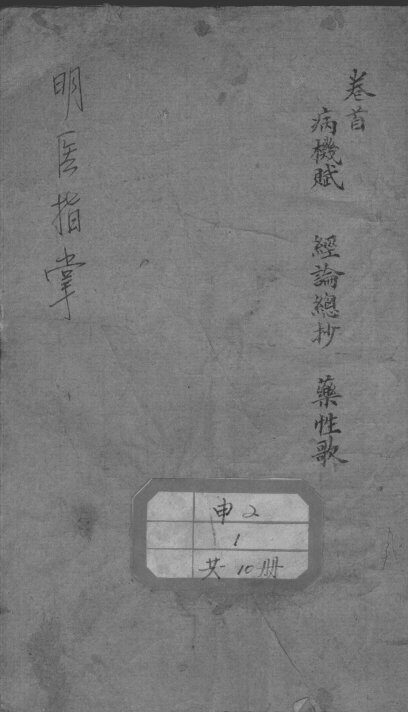 卷首
病機賦 經論總抄 藥性歌
明医指掌
申2
1
共10册